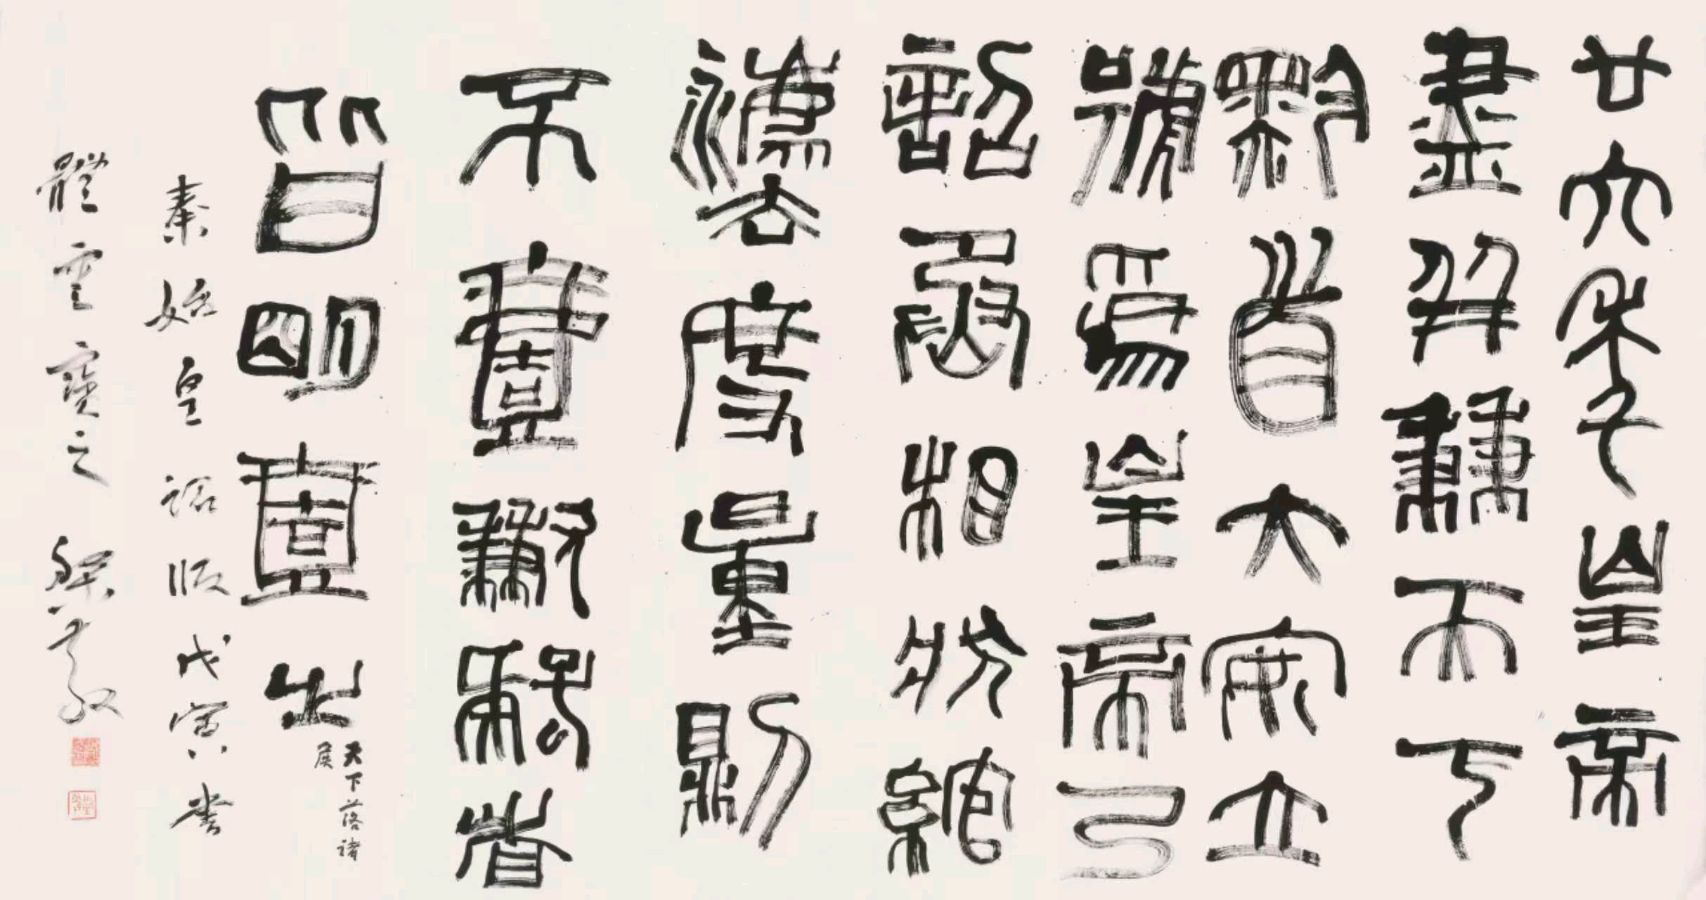 廿六年皇帝
盡并兼天下
黔首大安立
號爲皇帝乃
詔丞相狀綰
灋度量則
不壹歉疑者
皆明壹之
天下落諸
侯
秦始皇詔版戊寅書
體雲寶之